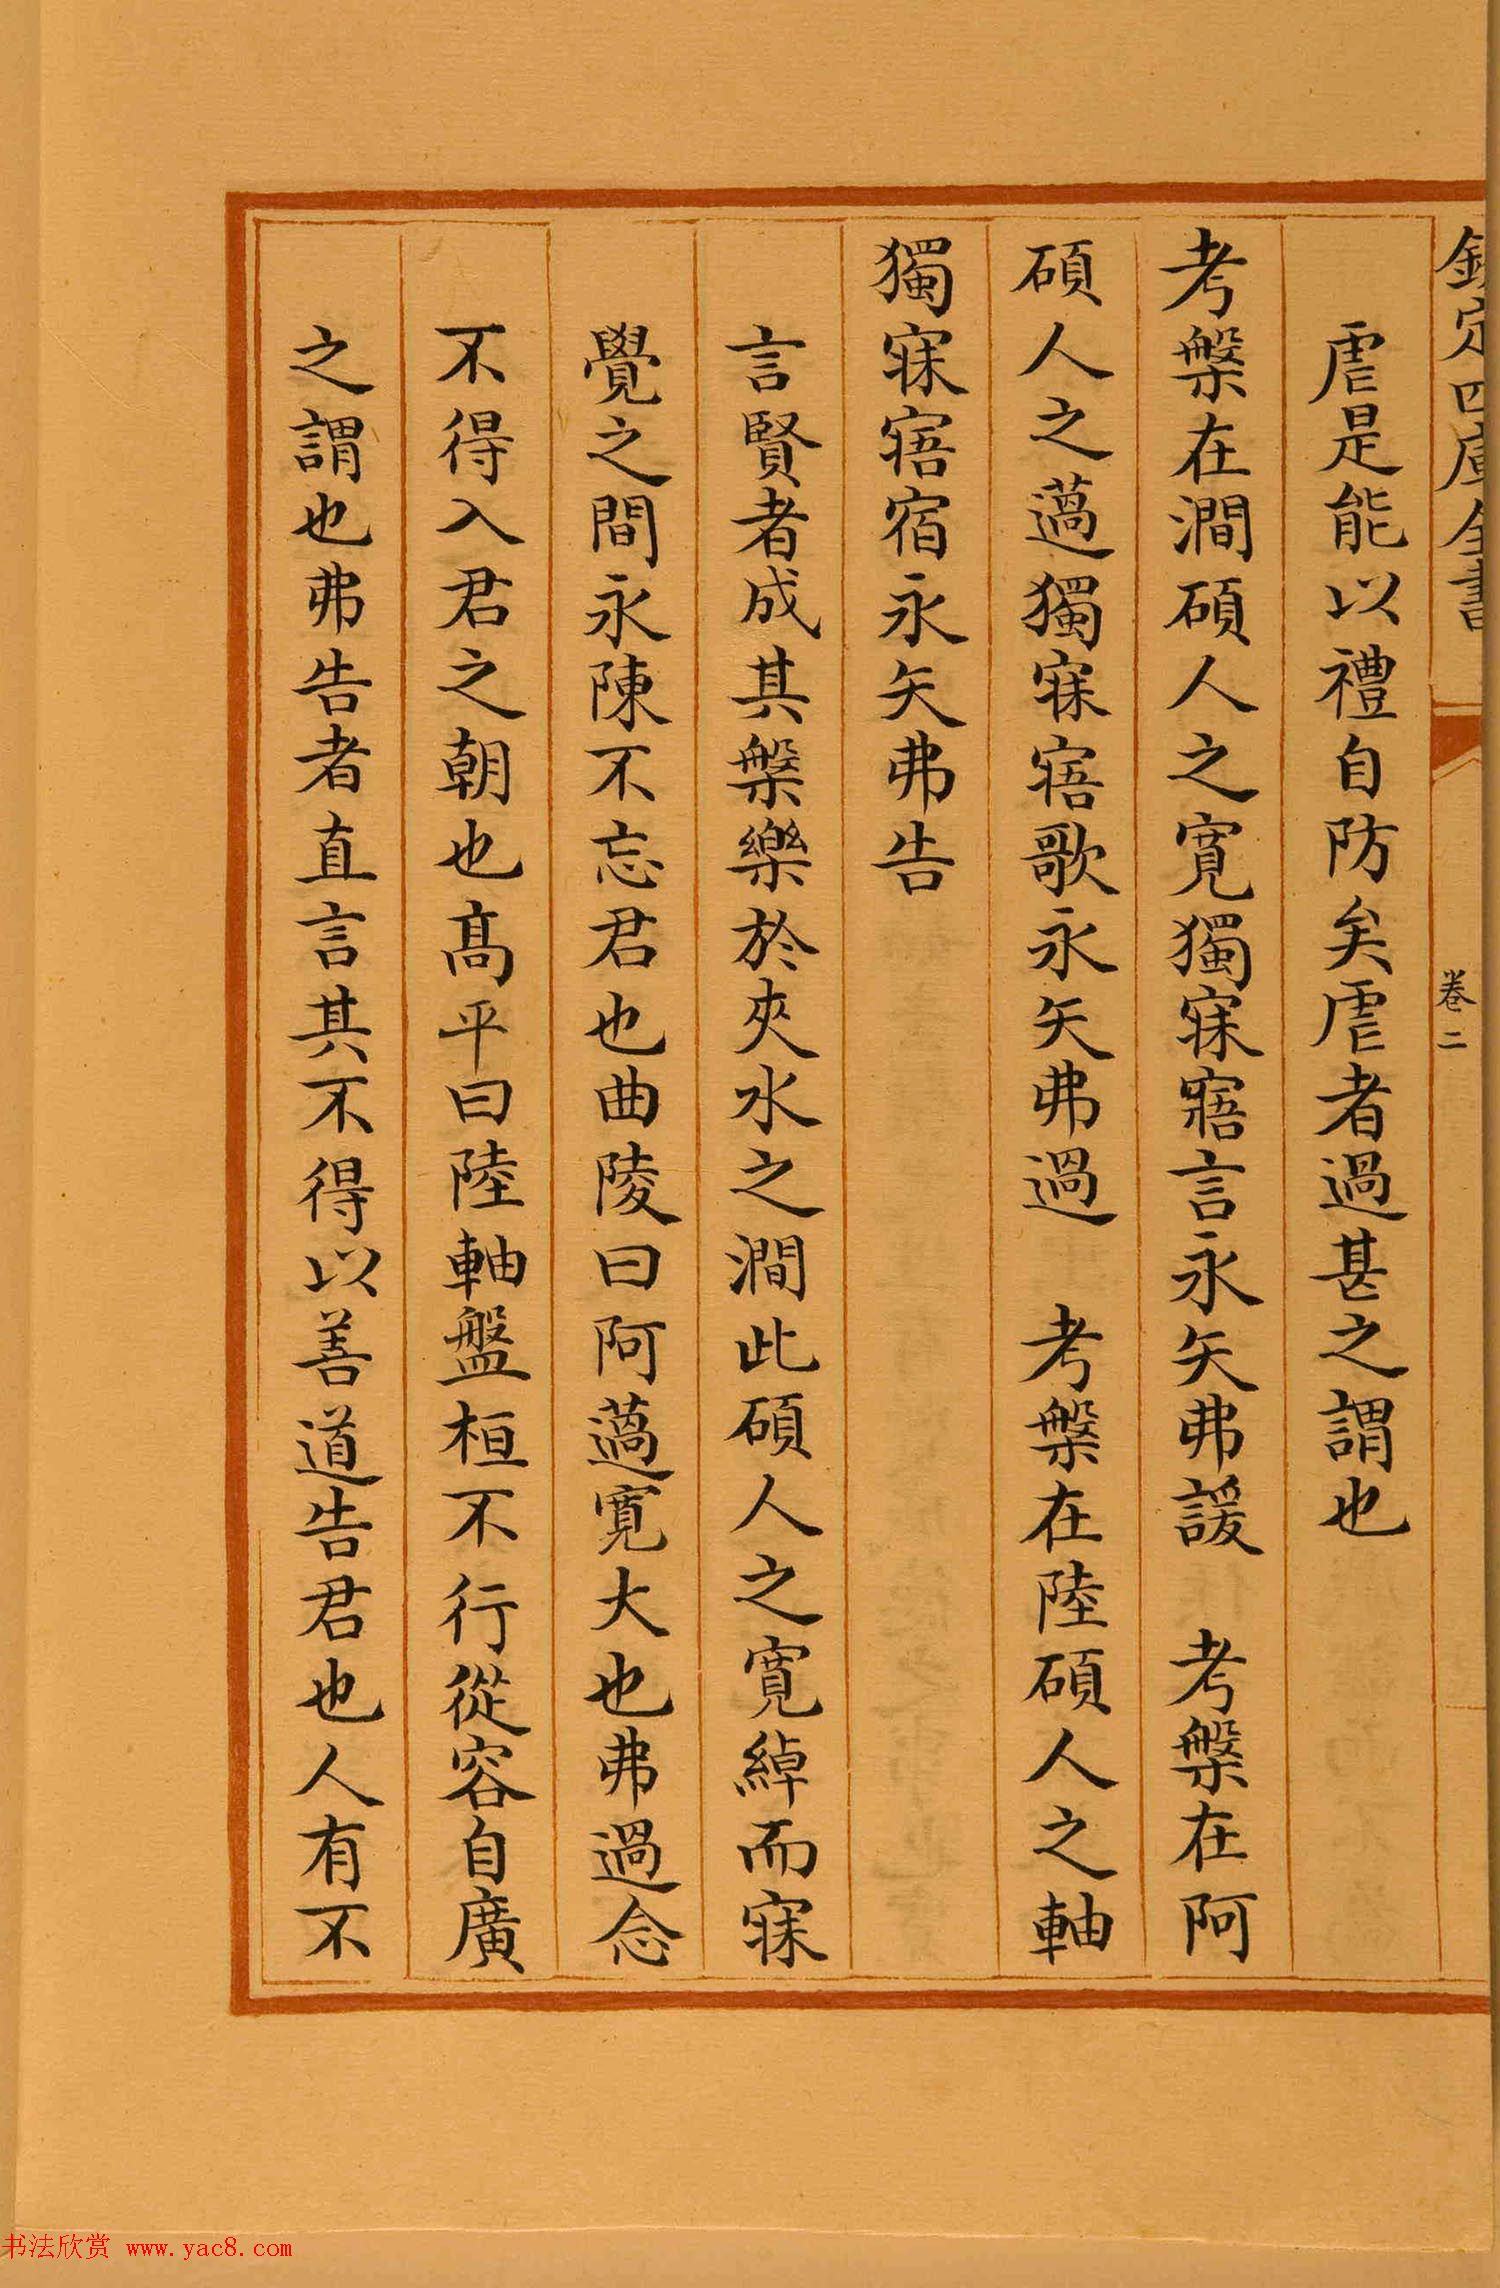 欽定四庫全書
卷二
虐是能以禮自防矣虐者過甚之謂也
考槃在澗碩人之寛獨寐寤言永矢弗諼　考槃在阿
碩人之薖獨寐寤歌永矢弗過　考槃在陸碩人之軸
獨寐寤宿永矢弗告
言賢者成其槃樂於夾水之澗此碩人之寛綽而寐
覺之間永陳不忘君也曲陵曰阿薖寛大也弗過念
不得入君之朝也髙平曰陸軸盤桓不行從容自廣
之謂也弗告者直言其不得以善道告君也人有不
书法欣赏 www.yac8.com